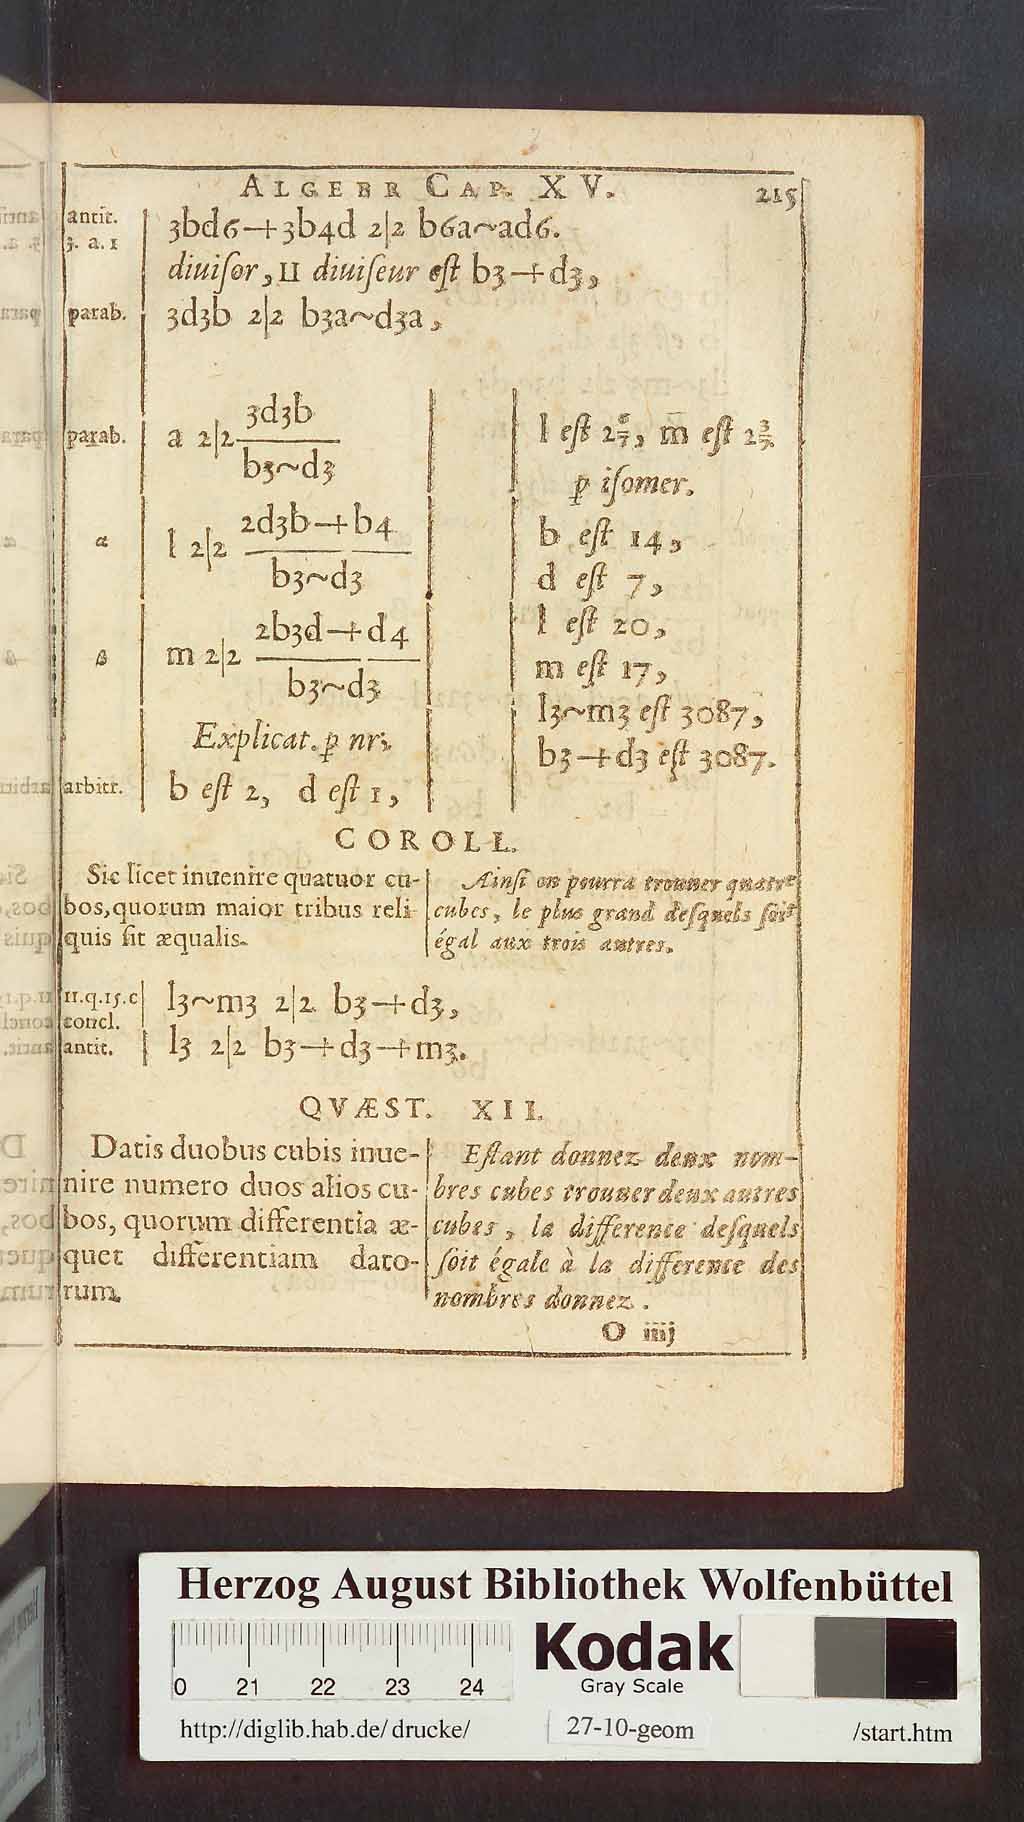 ALGEBR CAP. XV. 215
antit. 3bd6+3b4d 2|2 b6a~ad6.
3. a. 1
diuiſor, II diuiſeur eſt b3+d3,
parab. 3d3b 2|2 b3a~d3a,
parab. a 2|2 3d3b
b3~d3
α l 2|2 2d3b+b4
b3~d3
β m 2|2 2b3d+d4
b3~d3
Explicat. p nr;.
arbitr. b eſt 2, d eſt 1,
l eſt 2 6/7, m eſt 2 3/7.
p iſomer.
b eſt 14,
d eſt 7,
l eſt 20,
m eſt 17,
l3~m3 eſt 3087,
b3+d3 eſt 3087.
COROLL.
Sic licet inuenire quatuor cu-
bos, quorum maior tribus reli-
quis ſit æqualis.
Ainſi on pourra trouuer quatre
cubes, le plus grand deſquels ſoit
égal aux trois autres.
11.q.15.c l3~m3 2|2 b3+d3,
concl.
antit. l3 2|2 b3+d3+m3.
QVÆST. XII.
Datis duobus cubis inue-
nire numero duos alios cu-
bos, quorum differentia æ-
quet differentiam dato-
rum.
Eſtant donnez deux nom-
bres cubes trouuer deux autres
cubes, la difference deſquels
ſoit égale à la difference des
nombres donnez.
O iiij
Herzog August Bibliothek Wolfenbüttel
0 21 22 23 24
Kodak
Gray Scale
http://diglib.hab.de/drucke/ 27-10-geom /start.htm